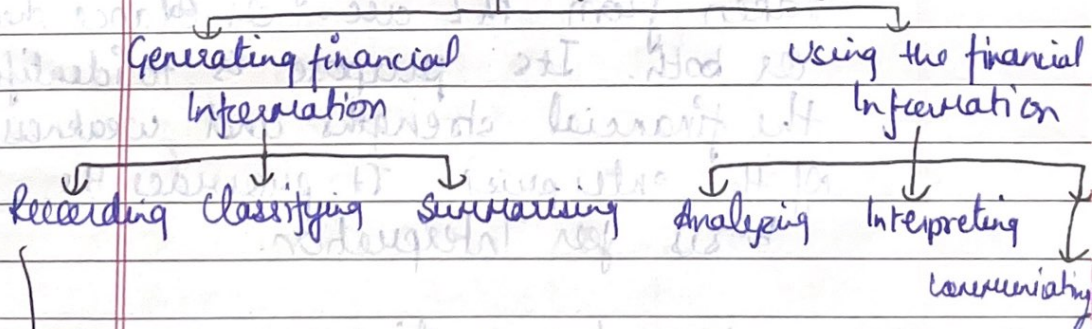 Generating financial Using the financial
Information Information
Recording Classifying Summarising Analyzing Interpreting
Communicating